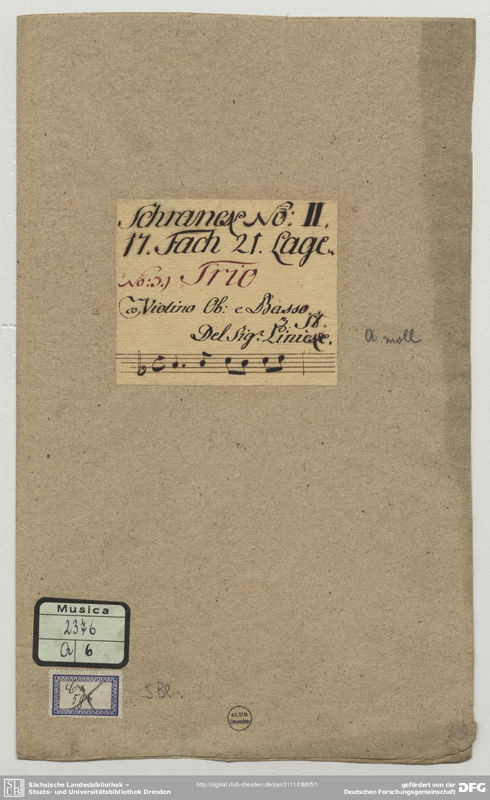 Schranck No: II.
17. Fach 21. Lage.
No: 3.) Trio
co Violino Ob: e Basso
3. St.
Del Sig.r Linicke.
a moll
Musica
2376
O 6
5 Bl.
Sächsische Landesbibliothek –
Staats- und Universitätsbibliothek Dresden
http://digital.slub-dresden.de/ppn311103995/1
gefördert von der
Deutschen Forschungsgemeinschaft
DFG